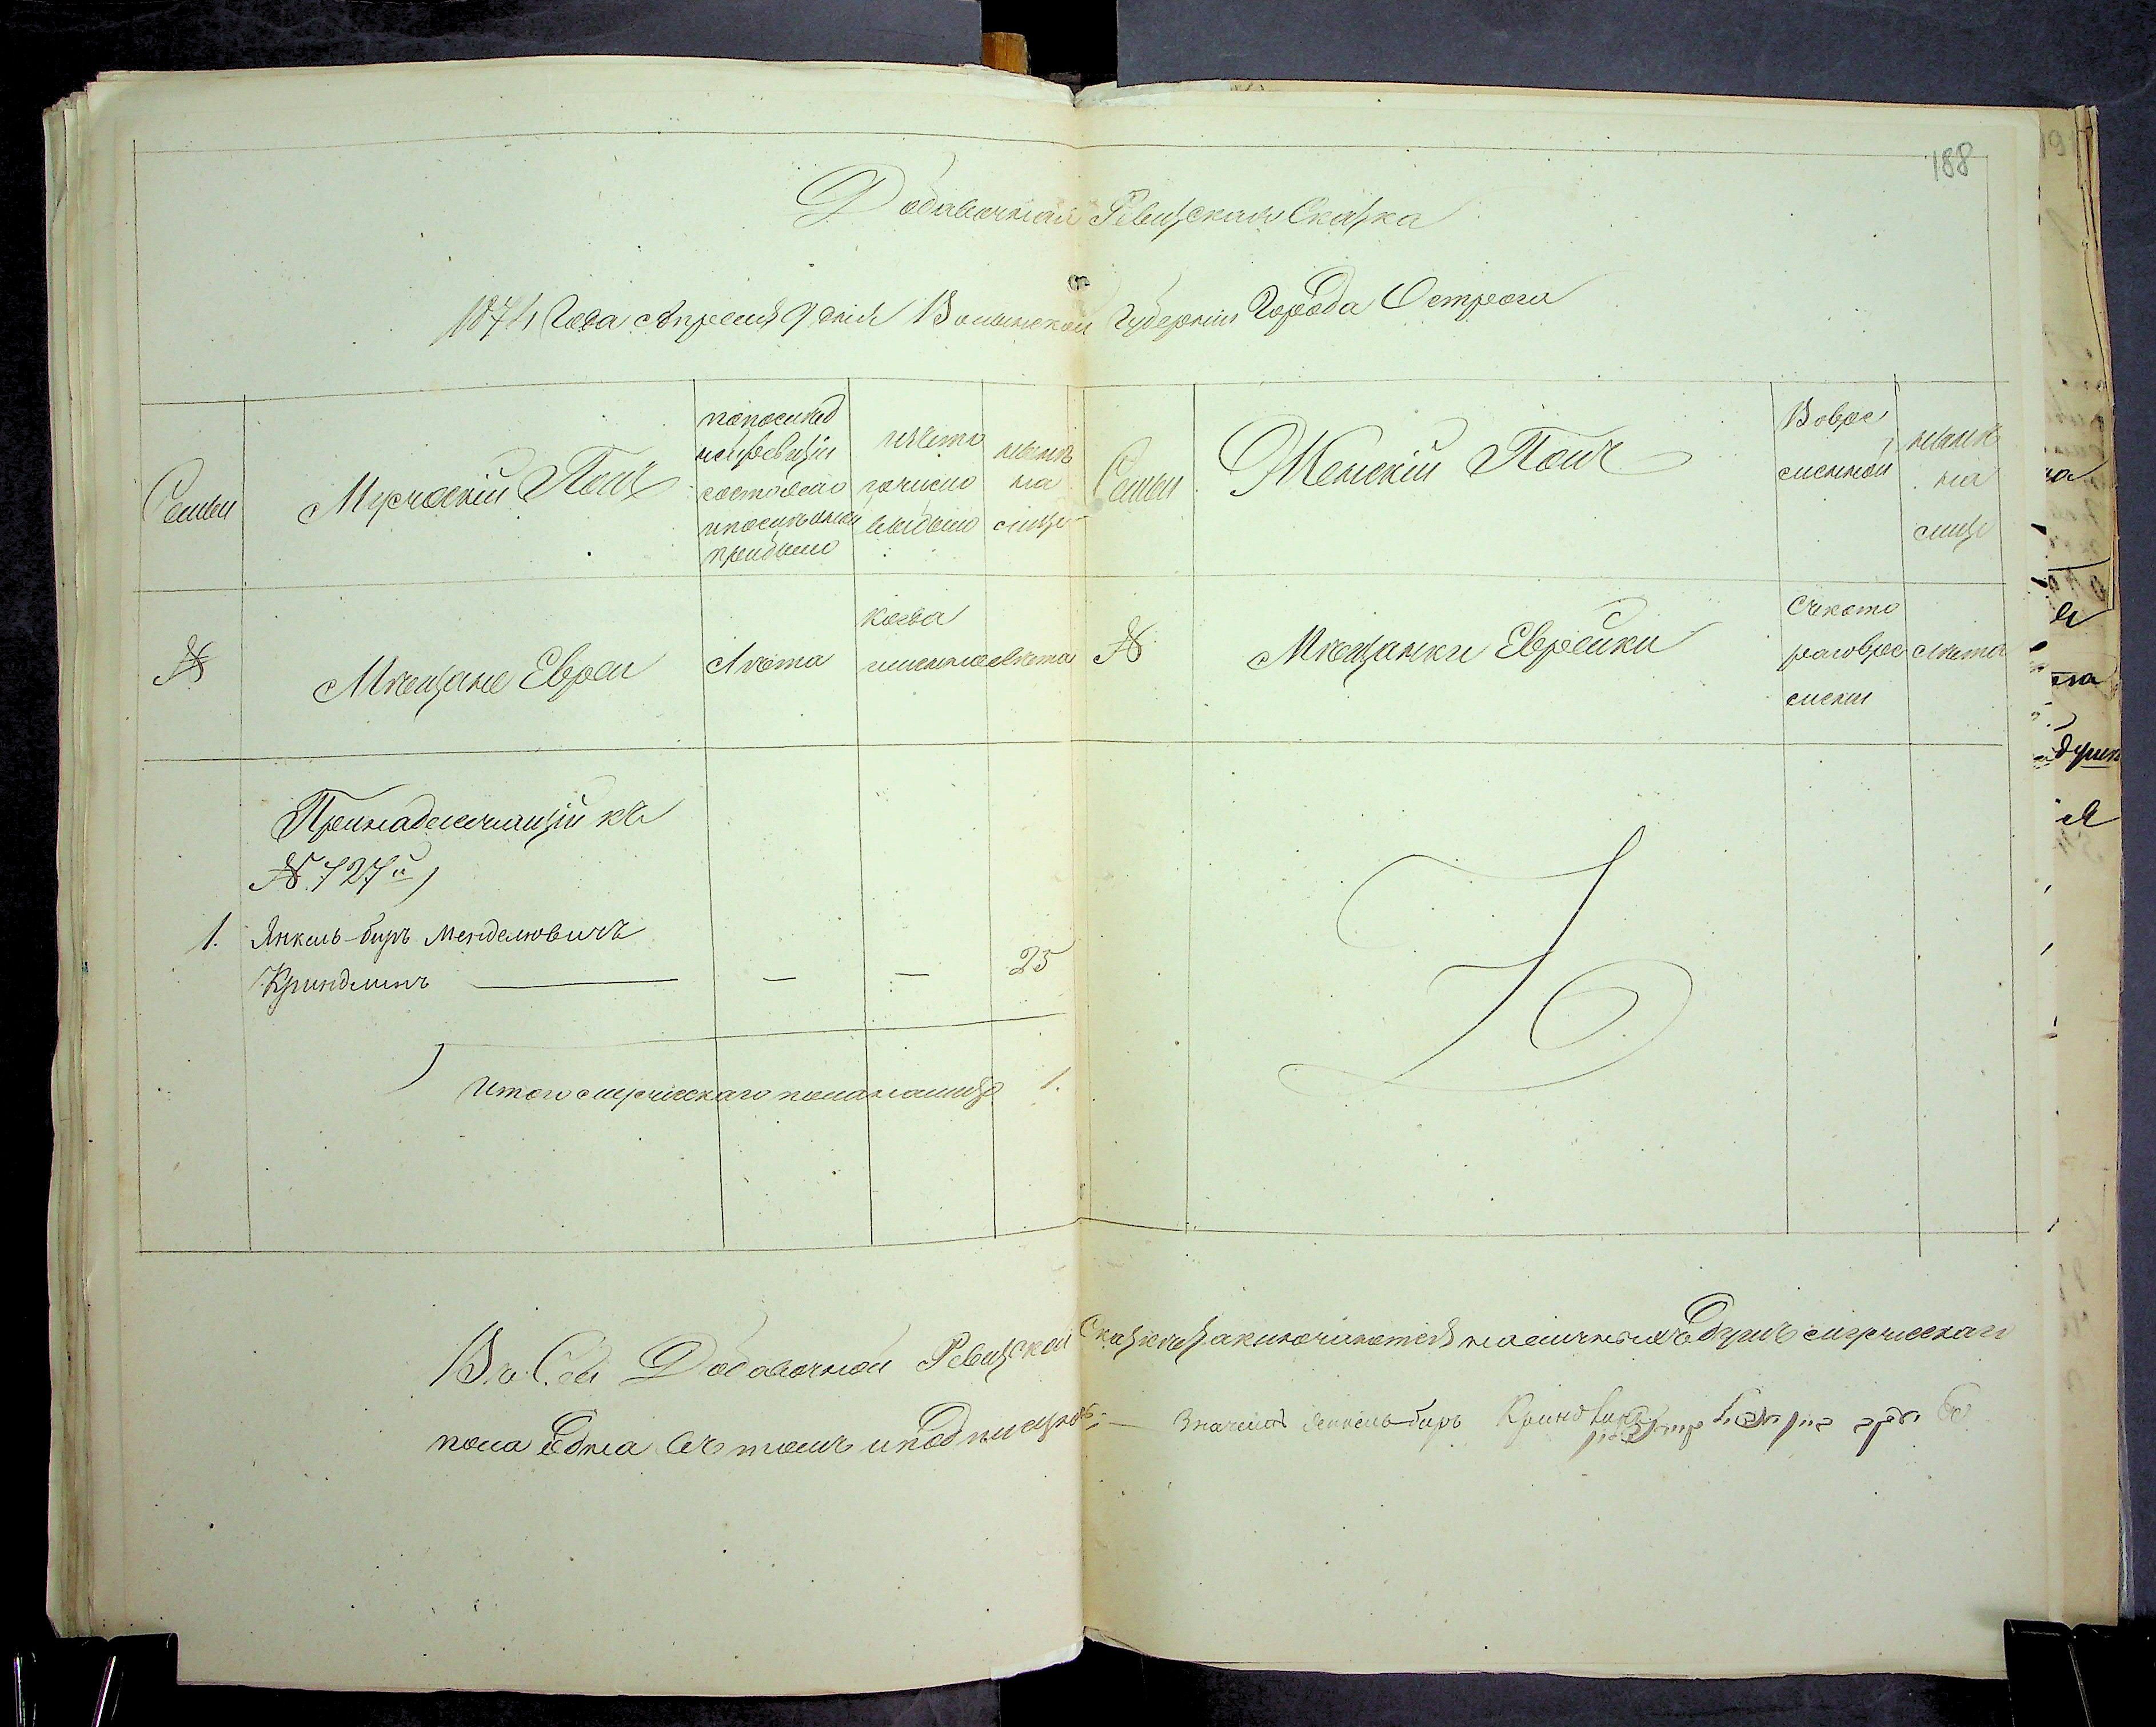 188
Добавочная Ревизская Сказка
1874 Года Апреля 9 дня Волынской Губерніи Города Острога
Семьи
Мужескій Полъ
по последней
ревизіи
состояло
и после оной
прибыло
изъ того
числа
выбыло
ныне
на
лице
Семьи
Женскій Полъ
Во вре
менной
ныне
на
лице
№
Мещане Евреи
Лета
когда
именно
Лета
№
Мещанки Еврейки
С кото
раго вре
мени
Лета
Принадлежащій къ
№ 727й
1. Янкель-беръ Менделіовичъ
Криндминъ — — — 25
Итого мужескаго пола на лице 1.
В сей Добавочной Ревизской Сказке заключается наличныхъ Душъ мужескаго
пола Една въ томъ и подписуюсь — Янкель-беръ